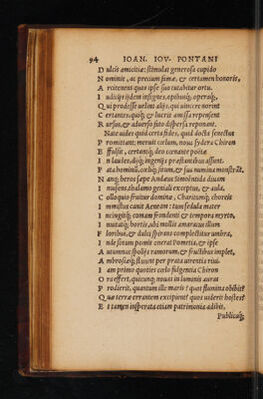 94 IOAN. IOV. PONTANI
Dulcis amicitiæ: stimulat generosa cupido
Nominis, ac precium famæ, & certamen honoris,
Arcitenens quos ipse suo curabitur ortu.
Iudicijs ijdem insignes, opibusq; operasq;
Qui prodesse uelint alijs, qui uincere norint
Certantes, quosq; & lucris amissa repensent
Rursus, & aduerso fuso dispersa reponant.
Nate uides quid certa fides, quid docta senectus
Promittant; merito cælum, noua sydera Chiron
Effulsit, certantq; deo ornare poëtæ
In laudes, dijsq; ingenijs præstantibus assunt.
Fata hominū, cœliq; situm, & sua numina monstrāt.
Nanq; heros sæpe Andreas Simonetida diuam
Inuisens, thalamo geniali exceptus, & aula,
Colloquio fruitur domino, Charitumq; choreis
Immistus canit Aenean: tum sedula mater
Incingitq; comam frondenti & tempora myrto,
Inuitatq; hortis, ubi mollis amaracus illum
Floribus, & dulci spirans complectitur umbra,
Inde sinum pomis onerat Pometia, & ipse
Autumnus spolijs ramorum, & fructibus implet,
Ambrosiæq; fluunt per prata uirentia riui.
Iam primo quoties cœlo fulgentia Chiron
Ora effert, quicunq; nouas in luminis auras
Prodierit, quantum ille maris! quot flumina obibit!
Qua terræ errantem excipient! quos uiderit hostes!
Et tamen insperata etiam patrimonia adibit,
Publicasq;